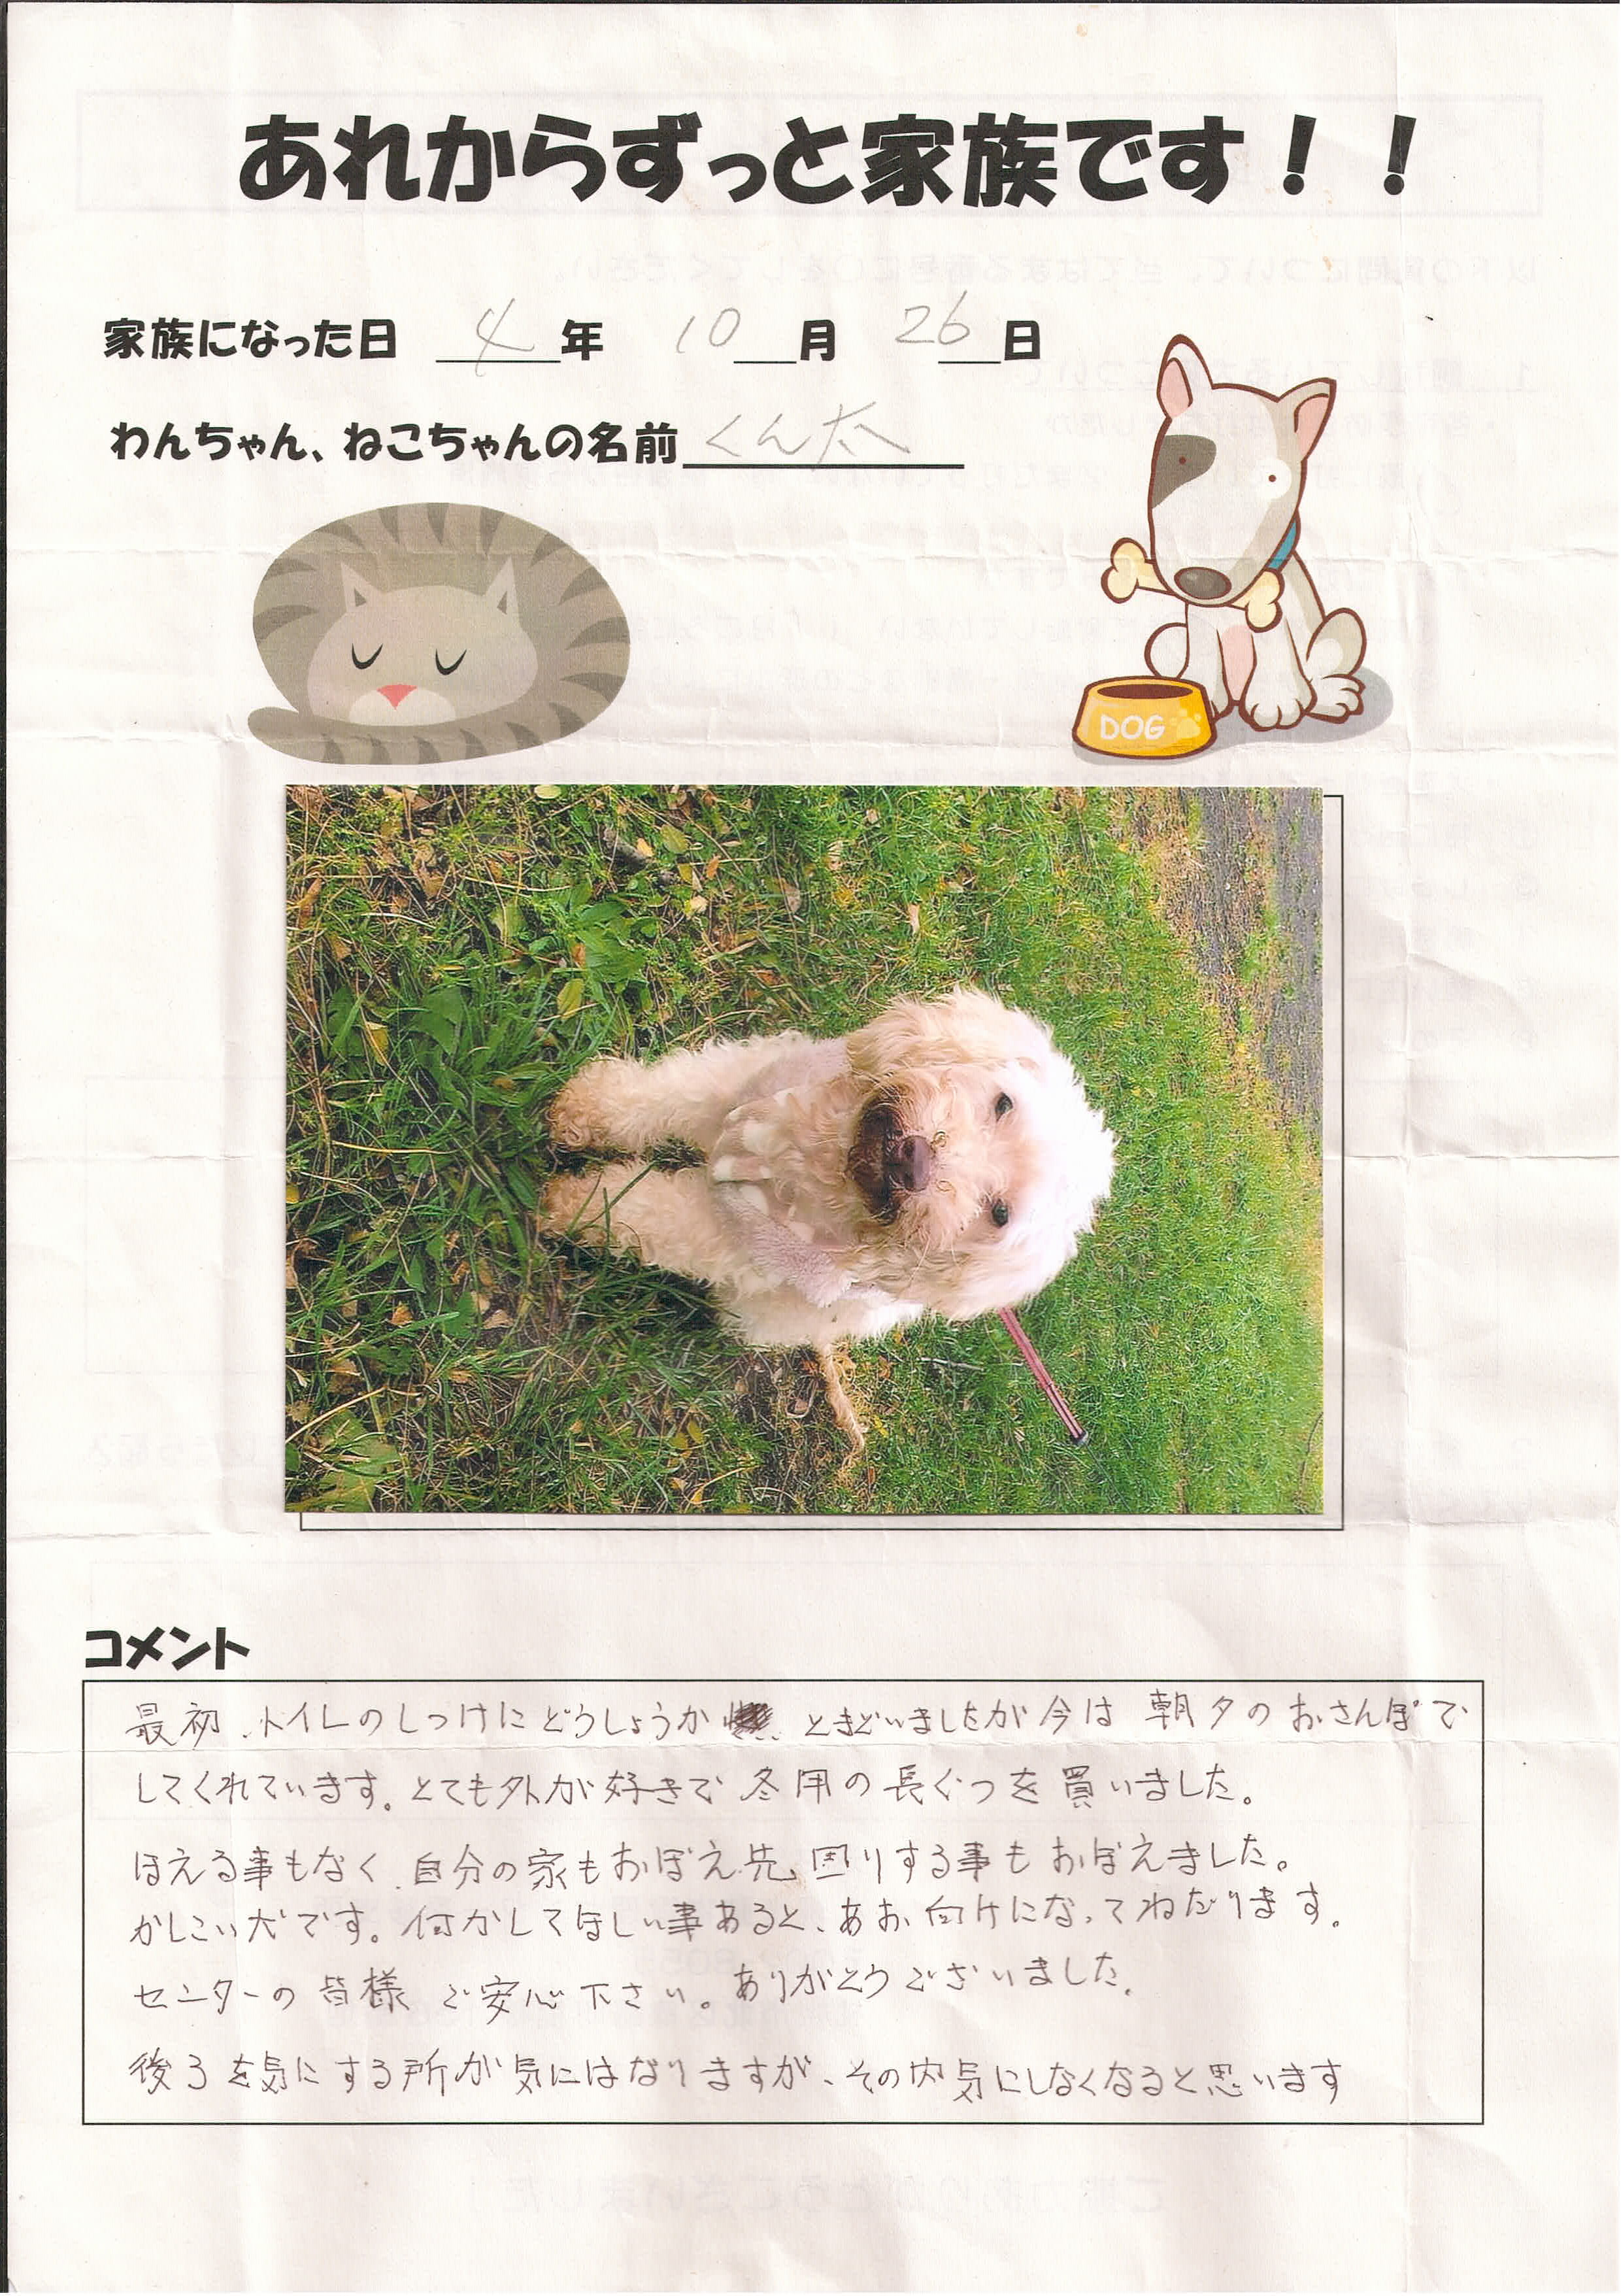 あれからずっと家族です！！
家族になった日 4年 10月 26日
わんちゃん、ねこちゃんの名前 くん太
DOG
コメント
最初、トイレのしつけにどうしょうか とまどいましたが今は 朝夕のおさんぽで
してくれています。とても外が好きで 冬用の長ぐつを買いました。
ほえる事もなく、自分の家もおぼえ先 回りする事もおぼえました。
かしこい犬です。何かしてほしい事あると、あお向けになってねだります。
センターの皆様 ご安心下さい。ありがとうございました。
後ろを気にする所が気にはなりますが、その内気にしなくなると思います